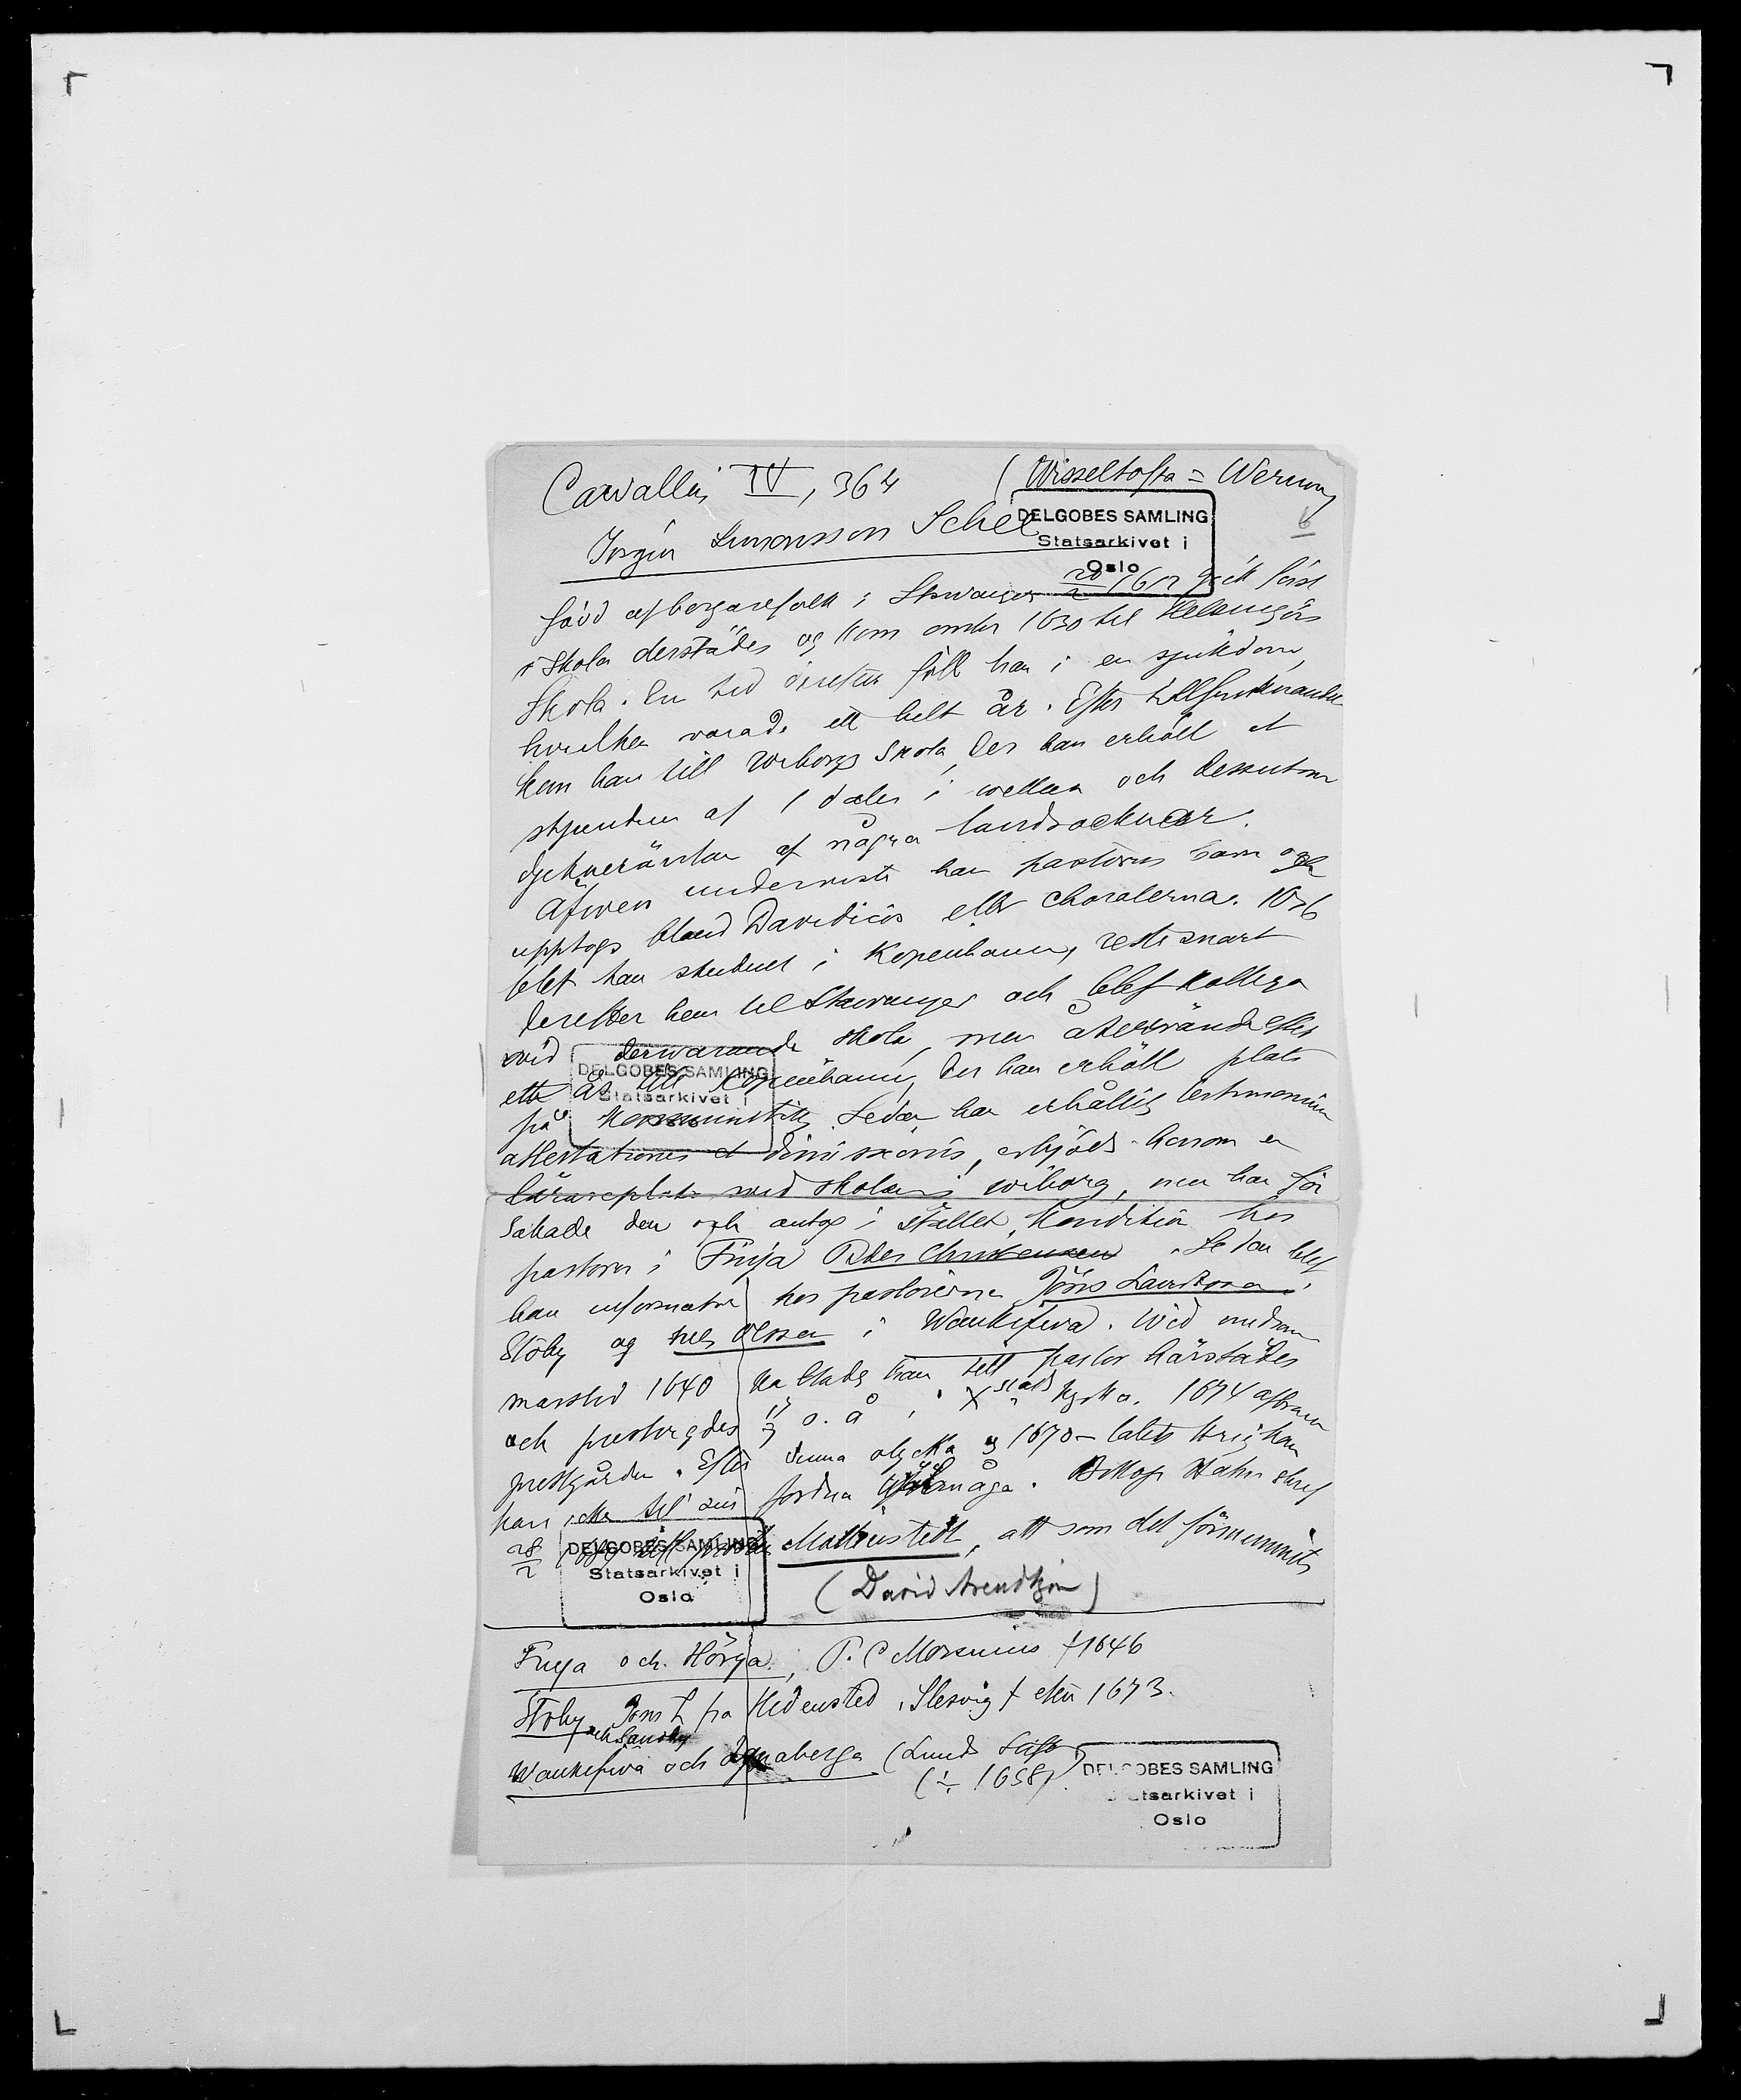 Cavallin IV, 364 (Wisseltofta = Werum
Jörgen Simonsson Schel
DELGOBES SAMLING
Statsarkivet i
Oslo
född af borgarefolk i Stavanger 20/2 1612 gick först
i skola derstädes og kom omkr 1630 til Helsingörs
skola. En tid derefter föll han i en sjukdom,
hvilken varade ett helt år. Efter tillfrisknandet
kom han till Wiborgs skola, der han erhöll et
stipendium af 1 daler i wekan och dessutom
djeknerätten af några landsocknar.
Äfwen underviste han pastorns barn och
upptogs bland Davidicos eller choralerna. 1636
blef han student i Kopenhamn, reste snart
derefter hem til Stavanger och blef kollega
wid derwarande skola, men återwände efter
ett år till Kopenhamn, der han erhöll plats
DELGOBES SAMLING
Statsarkivet i
på Kommunitet. Sedan han erhållit testimonium
attestationis et dimissionis, erbjöds honom en
lärareplats wid skolan i Wiborg, men han för
sakade den och antog i stället kondition hos
pastorn i Finja Peder Christensen. Sedan blef
han informator hos pastorerna Jöns Lauritzon i
Stoby og Nils Olsson i Wankifwa. Wid midsom
marstid 1640 kallades han till pastor härstädes
och prestvigdes 17/7 s. å. i X stads kyrka. 1674 afbrann
prestgården. Efter denna olycka og 1670-talets krig kom
han icke til sin fordna förmåga. Biskop Hahn skref
28/2 till prosten Mathias tedt, att som det förnummits
DELGOBES SAMLING
Statsarkivet i
Oslo
(David Arendtzon)
Finja och Hörja, P. C Morsenius † 1646
Stoby Jöns L fra Hedensted, Slesvig † 1673.
och Sandby
Wankifwa och Ignaberga (Lunds Stift
(÷ 1658)
DELGOBES SAMLING
Statsarkivet i
Oslo